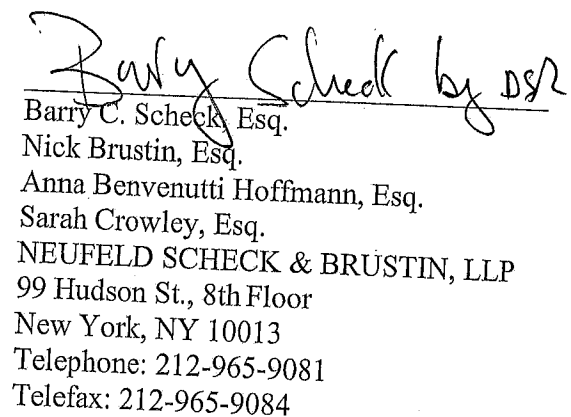 Barry Scheck by DSR
Barry C. Scheck, Esq.
Nick Brustin, Esq.
Anna Benvenutti Hoffmann, Esq.
Sarah Crowley, Esq.
NEUFELD SCHECK & BRUSTIN, LLP
99 Hudson St., 8th Floor
New York, NY 10013
Telephone: 212-965-9081
Telefax: 212-965-9084